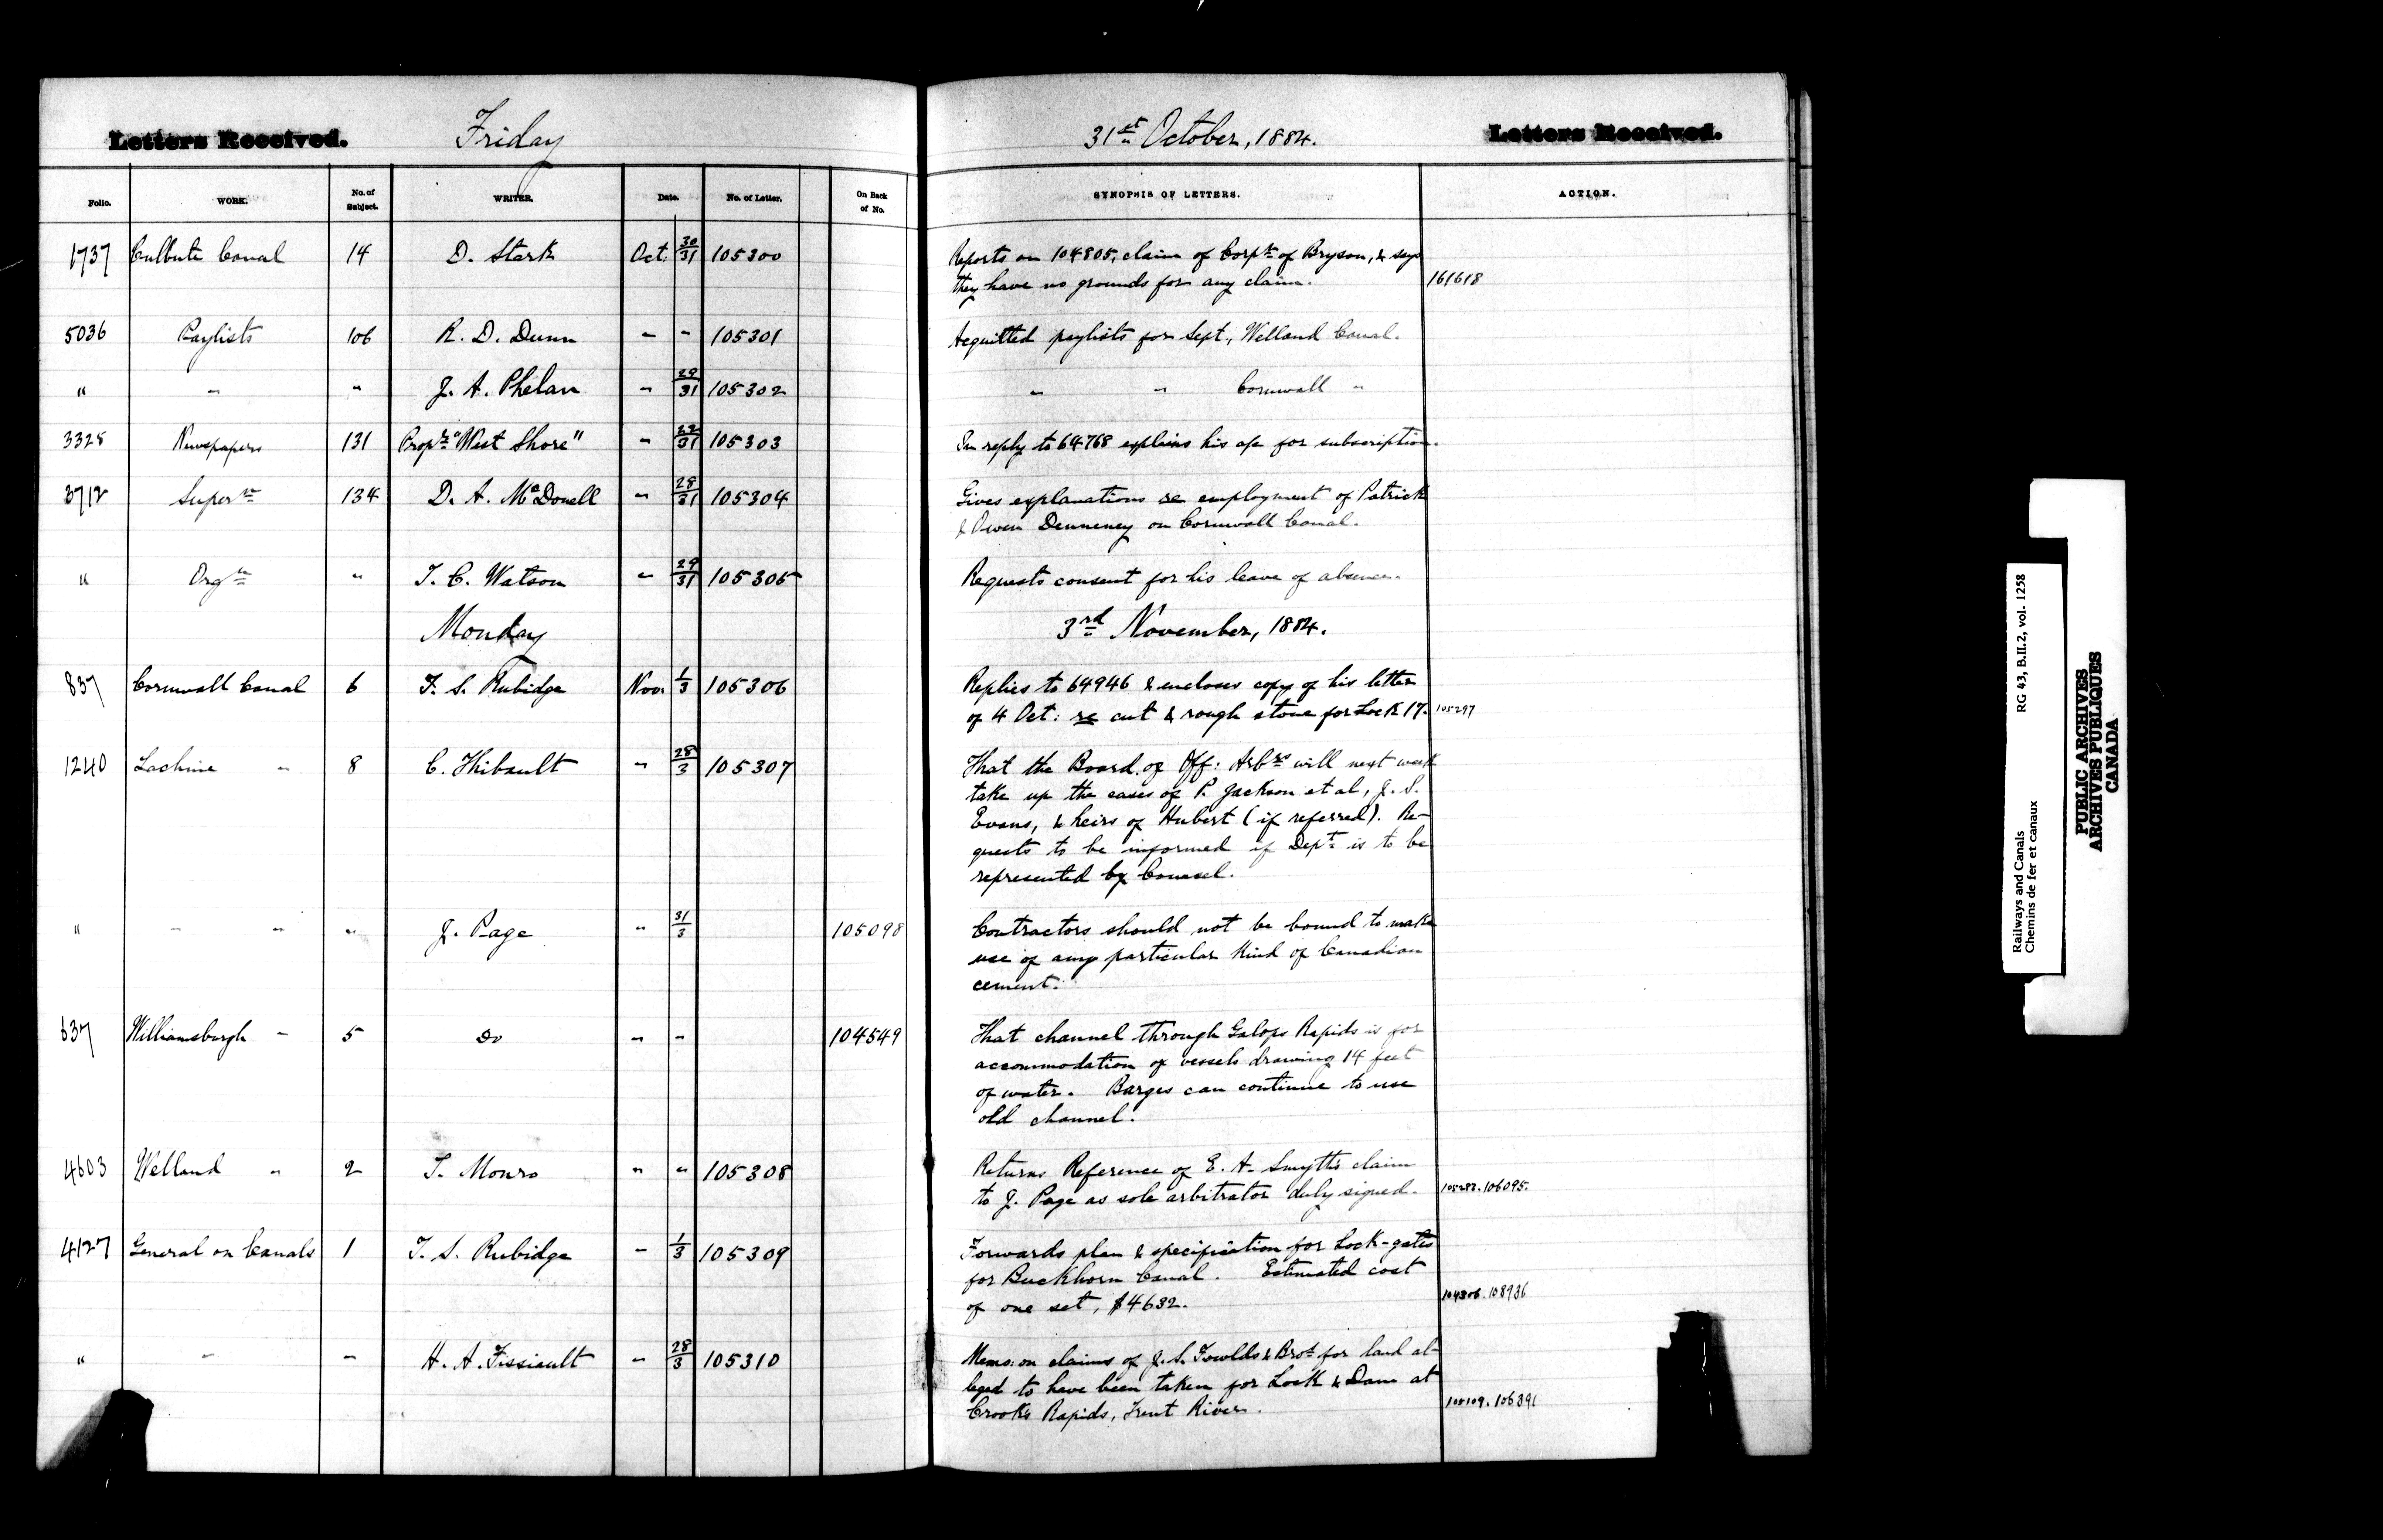 Letters Received. Friday 31st October, 1884. Letters Received.
Folio. WORK. No. of Subject. WRITER. Date. No. of Letter. On Back of No. SYNOPSIS OF LETTERS. ACTION.
1737 Culbute Canal 14 D. Stark Oct. 30/31 105300 Reports on 104805, claim of Corpn of Bryson, & says
they have no grounds for any claim. 161618
5036 Paylists 106 R. D. Dunn " " 105301 Acquitted paylists for Sept., Welland Canal.
" " " J. A. Phelan " 29/31 105302 " " Cornwall "
3328 Newspapers 131 Propr "West Shore" " 22/31 105303 In reply to 64768 explains his a/c for subscription.
3712 Super 134 D. A. McDonell " 28/31 105304 Gives explanations re employment of Patrick
& Owen Denneney on Cornwall Canal.
" Orgn " T. C. Watson " 29/31 105305 Requests consent for his leave of absence.
Monday 3rd November, 1884.
837 Cornwall Canal 6 T. S. Rubidge Nov. 1/3 105306 Replies to 64946 & encloses copy of his letter
of 4 Oct: re cut & rough stone for Lock 17. 105297
1240 Lachine " 8 C. Thibault " 28/3 105307 That the Board of Off: Arbrs will next week
take up the cases of P. Jackson et al, J. S.
Evans, & heirs of Hubert (if referred). Re-
quests to be informed if Dept is to be
represented by Counsel.
" " " " J. Page " 31/3 105098 Contractors should not be bound to make
use of any particular kind of Canadian
cement.
637 Williamsburgh " 5 Do " " 104549 That channel through Galops Rapids is for
accommodation of vessels drawing 14 feet
of water. Barges can continue to use
old channel.
4603 Welland " 2 T. Monro " " 105308 Returns Reference of E. A. Smyth's claim
to J. Page as sole arbitrator duly signed. 106095.
4127 General on Canals 1 T. S. Rubidge " 1/3 105309 Forwards plan & specification for Lock-gates
for Buckhorn Canal. Estimated cost
of one set, $4632. 104806. 108936
" " " H. A. Fissiault " 28/3 105310 Memo: on claims of J. S. Fowlds & Bros for land al-
leged to have been taken for Lock & Dam at
Crooks Rapids, Trent River. 106391
Railways and Canals RG 43, B.II.2, vol. 1258
Chemins de fer et canaux
PUBLIC ARCHIVES
ARCHIVES PUBLIQUES
CANADA